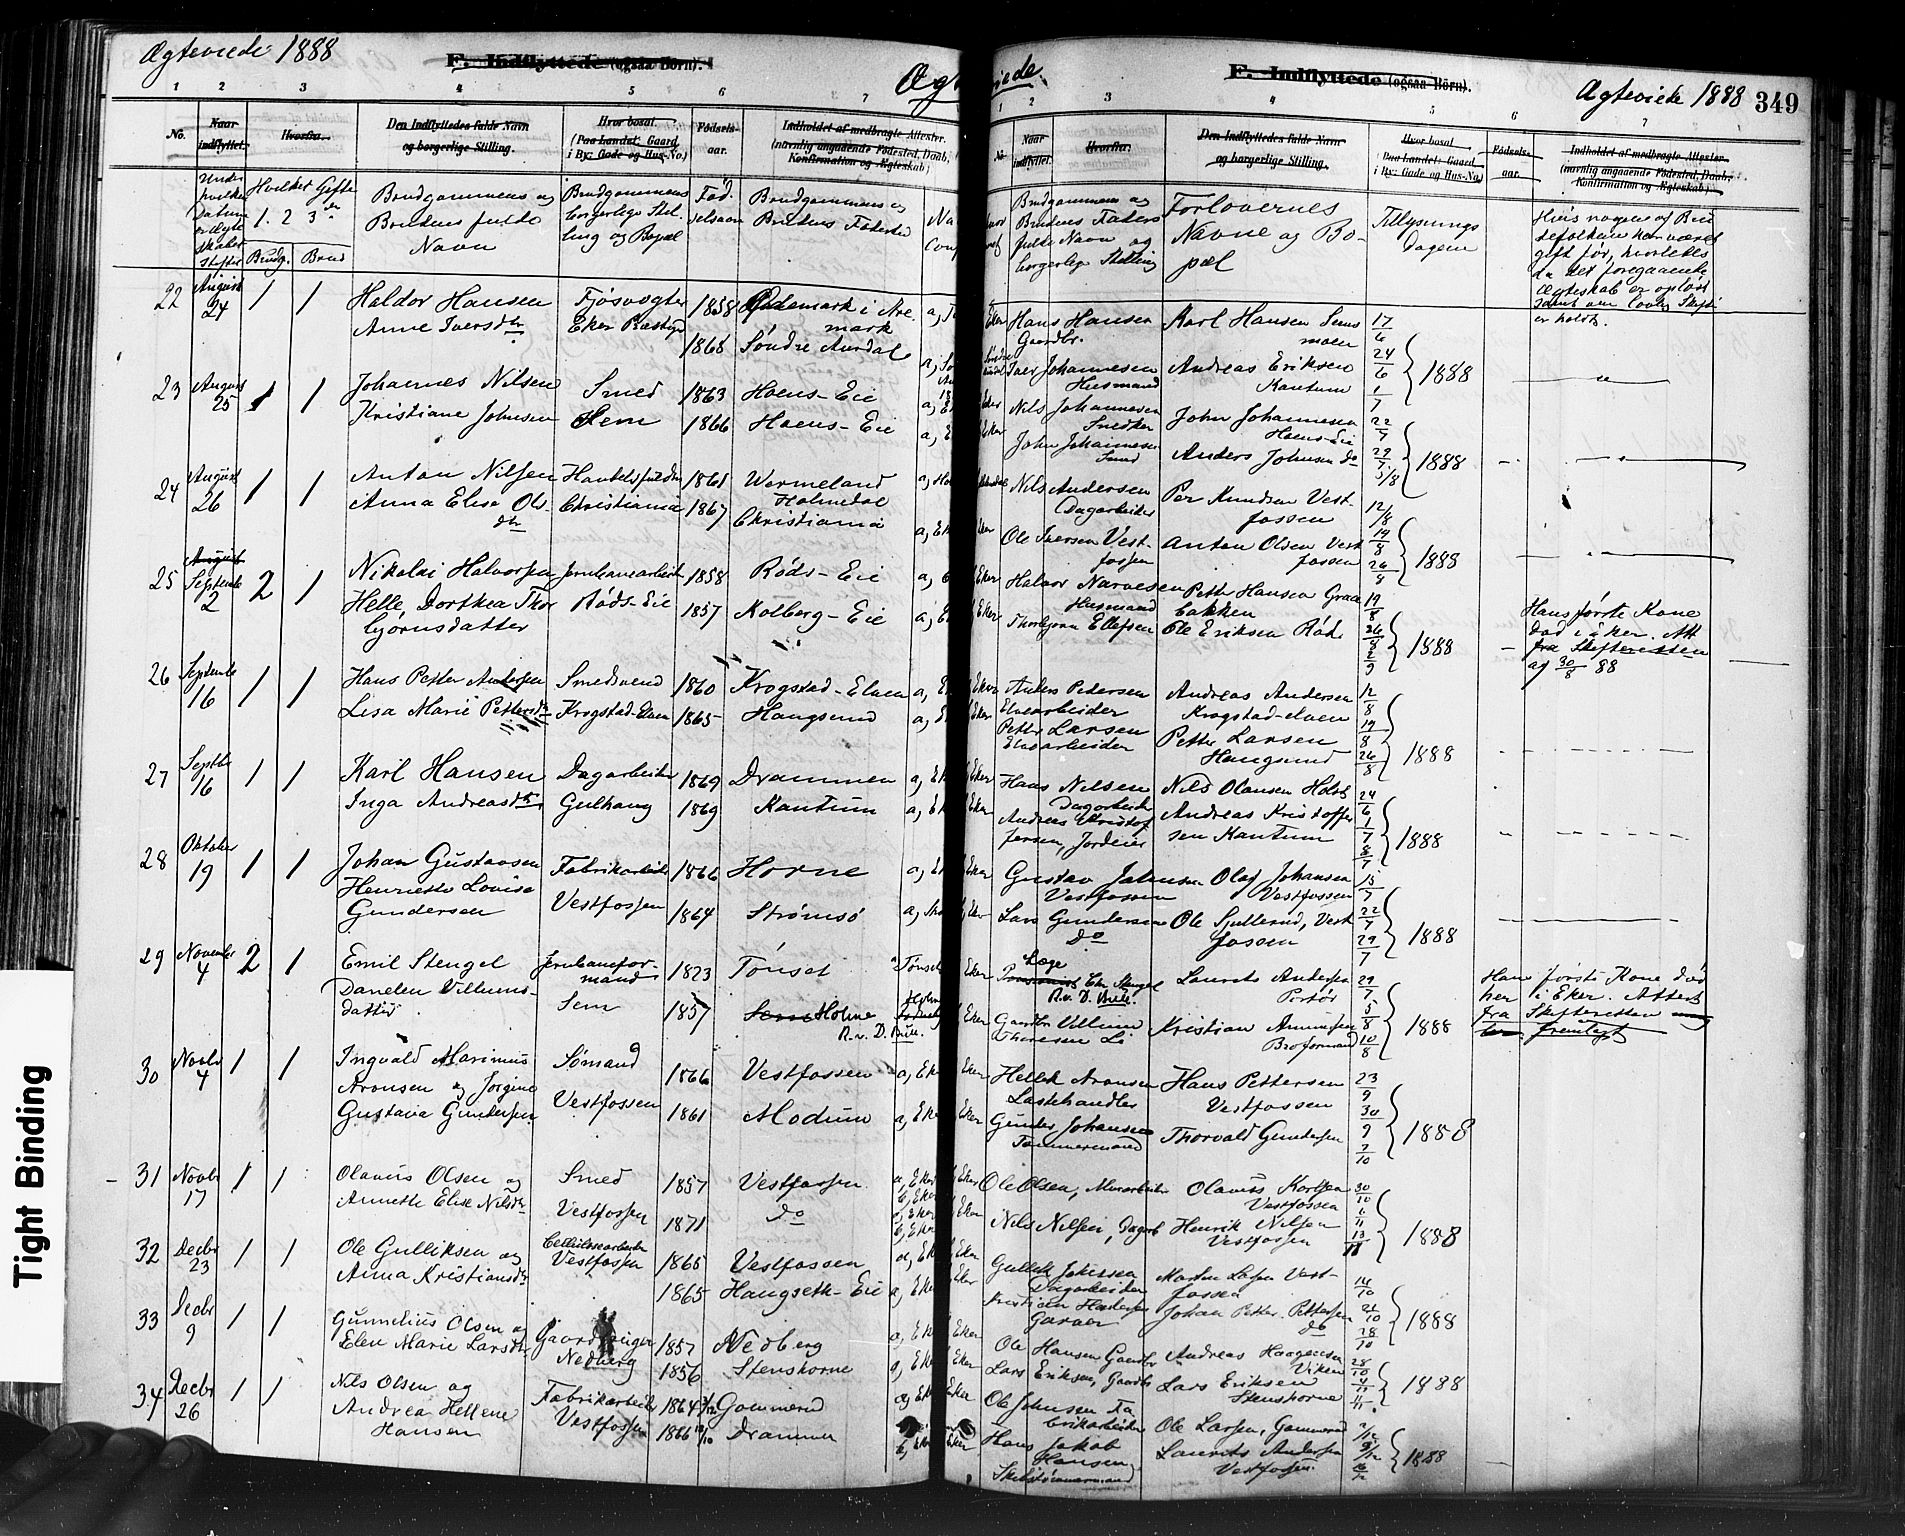 Ægteviede 1888
F. Indflyttede (ogsaa Börn).
Ægteviede
F. Indflyttede (ogsaa Börn).
Ægteviede 1888 349
1 2 3 4 5 6 7
1 2 3 4 5 6 7
No. Naar indflyttet. Hvorfra. Den Indflyttedes fulde Navn og borgerlige Stilling. Hvor bosat. (Paa Landet: Gaard i By: Gade og Hus-No.) Fødsels-aar. Indholdet af medbragte Attester. (navnlig angaaende Födested, Daab, Konfirmation og Ægteskab)
Naar indflyttet. Hvorfra. Den Indflyttedes fulde Navn og borgerlige Stilling. Hvor bosat Paa Landet: Gaard i By: Gade og Hus-No. Födsels-aar. Indholdet af medbragte Attester (navnlig angaaende Födested, Daab, Konfirmation og Ægteskab)
Under hvilket Datum er Ægteskabet stiftet
Hvilket Gifte
1. 2 3die
Brudg. Brud
Brudgommens og
Brudens fulde
Navn
Brudgommens
borgerlige Stil-
ling og Bopæl
Fød
selsaar
Brudgommens og
Brudens Fødested
Brudgommens og
Brudens Faders
fulde Navn og
borgerlige Stilling
Forlovernes
Navne og Bo-
pæl
Tillysnings
dagene
Hvis nogen af Bru
defolkene har været
gift før, hvorledes
da det foregaaende
Ægteskab er opløst
samt om lovlig Skifte
er holdt.
22 August 24 1 1 Haldor Hansen Fjøsvogter 1858
Anne Iversdtr Eker Præstgd 1868 Søndre Aurdal
Hans Hansen Karl Hansen Sems 17/6
Gaardbr. moen
Iver Johannesen Andreas Eriksen 24/6
Husmand Kantum 1/7 1888
23 August 25 1 1 Johannes Nilsen Smed 1863 Hoens-Eie
Kristiane Johnsen Sem 1866 Hoens-Eie
Nils Johannesen John Johannesen 22/7
Snedker Hoens-Eie
John Johannesen Anders Johnsen do 29/7
Smed 5/8 1888
24 August 26 1 1 Anton Nilsen 1861 Wermeland
Anna Elise Ols- Christiania 1867 Holmedal
dtr Christiania
Nils Andersen Per Knudsen Vest- 12/8
Dagarbeider fossen
Ole Iversen Vest- Anton Olsen Vest 19/8
fossen fossen 26/8 1888
25 August Septembr 2 2 1 Nikolai Halvorsen Jernbanearbeid 1858 Røds-Eie
Helle Dorthea Thor Røds-Eie 1857 Kolberg-Eie
bjørnsdatter
Halvor Narvesen Petter Hansen Graa 19/8
Husmand bakken
Thorbjørn Ellefsen Ole Eriksen Røds 26/8
2/9 1888
Hans første Kone
død i Eker. Att
fra Skifteretten
af 30/8 88
26 Septembr 16 1 1 Hans Petter Andersen Smedsvend 1860 Krogstad-Elven
Lisa Marie Pettersdtr Krogstad-Elven 1865 Haugsund
Anders Pedersen Andreas Andersen 12/8
Elvearbeider Krogstad-elven
Petter Larsen Petter Larsen 19/8
Elvearbeider Haugsund 26/8 1888
27 Septbr 16 1 1 Karl Hansen Dagarbeider 1869 Drammen
Inga Andreasdtr Gulhaug 1869 Kantum
Hans Nilsen Nils Olausen Holst 24/6
Dagarbeider
Andreas Kristof Andreas Kristoffer 1/7
fersen, Jordeier sen Kantum 8/7 1888
28 Oktober 19 1 1 Johan Gustavsen Fabrikarbeid 1866 Horne
Henriette Lovise Vestfossen 1864 Strømsø
Gundersen
Gustav Johnsen Olaf Johansen 15/7
Vestfossen Vestfossen
Lars Gundersen Ole Sjullerud, Vest 22/7
do fossen 29/7 1888
29 November 4 2 1 Emil Stengel Jernbanefor 1823 Tönset
Danelen Villums- mand
datter Sem 1857 Sem Holme
R.v. D. Bull.
Læge
Chr Stengel Laurits Andersen 29/7
R.v. D. Bull. Portør
Gaardbr Villum Kristian Amundsen 5/8
Thoresen Li Baneformand 10/8 1888
Hans første Kone død
her i Eker. Attest
fra Skifteretten
fremlagt
30 Novbr 4 1 1 Ingvald Marinius Sømand 1866 Vestfossen
Aronsen og Jørgine Vestfossen 1861 Modum
Gustava Gundersen
Hellek Aronsen Hans Pettersen 23/9
Lastehandler Vestfossen
Gunder Johansen Thorvald Gundersen 30/9
Tømmermand 7/10 1888
31 Novbr 17 1 1 Olavus Olsen og Smed 1857 Vestfossen
Annette Elise Nilsdtr Vestfossen 1871 do
Ole Olsen, Murarbeider Olavus Karlsen 30/10
Vestfossen
Nils Nilsen, Dagarb Henrik Nilsen 6/11
Vestfossen 13/11 1888
32 Decbr 23 1 1 Ole Gulliksen og Cellulosearbeider 1865 Vestfossen
Anna Kristiansdtr Vestfossen 1865 Haugseth-Eie
Gullik Jokumsen Morten Larsen Vest- 14/10
Dagarbeider fossen
Kristian Haldorsen Johan Petter Pettersen 21/10
Garver do 28/10 1888
33 Decbr 9 1 1 Gunnelius Olsen og Gaardbruger 1857 Nedberg
Elen Marie Larsdtr Nedberg 1856 Stenshorne
Ole Hansen Gaardbr Andreas Haagensen 28/10
Viken
Lars Eriksen, Gaardbr Lars Eriksen 4/11
Stenshorne 11/11 1888
34 Decbr 26 1 1 Nils Olsen og Fabrikarbeid 1864 Gommerud
Andrea Hellene Vestfossen 1866 Drammen
Hansen
Ole Johnsen Fa Ole Larsen, Gommerud 2/12
brikarbeider
Hans Jakob Laurits Andersen 9/12
Hansen Vestfossen 16/12 1888
Skibstømmermand
Tight Binding